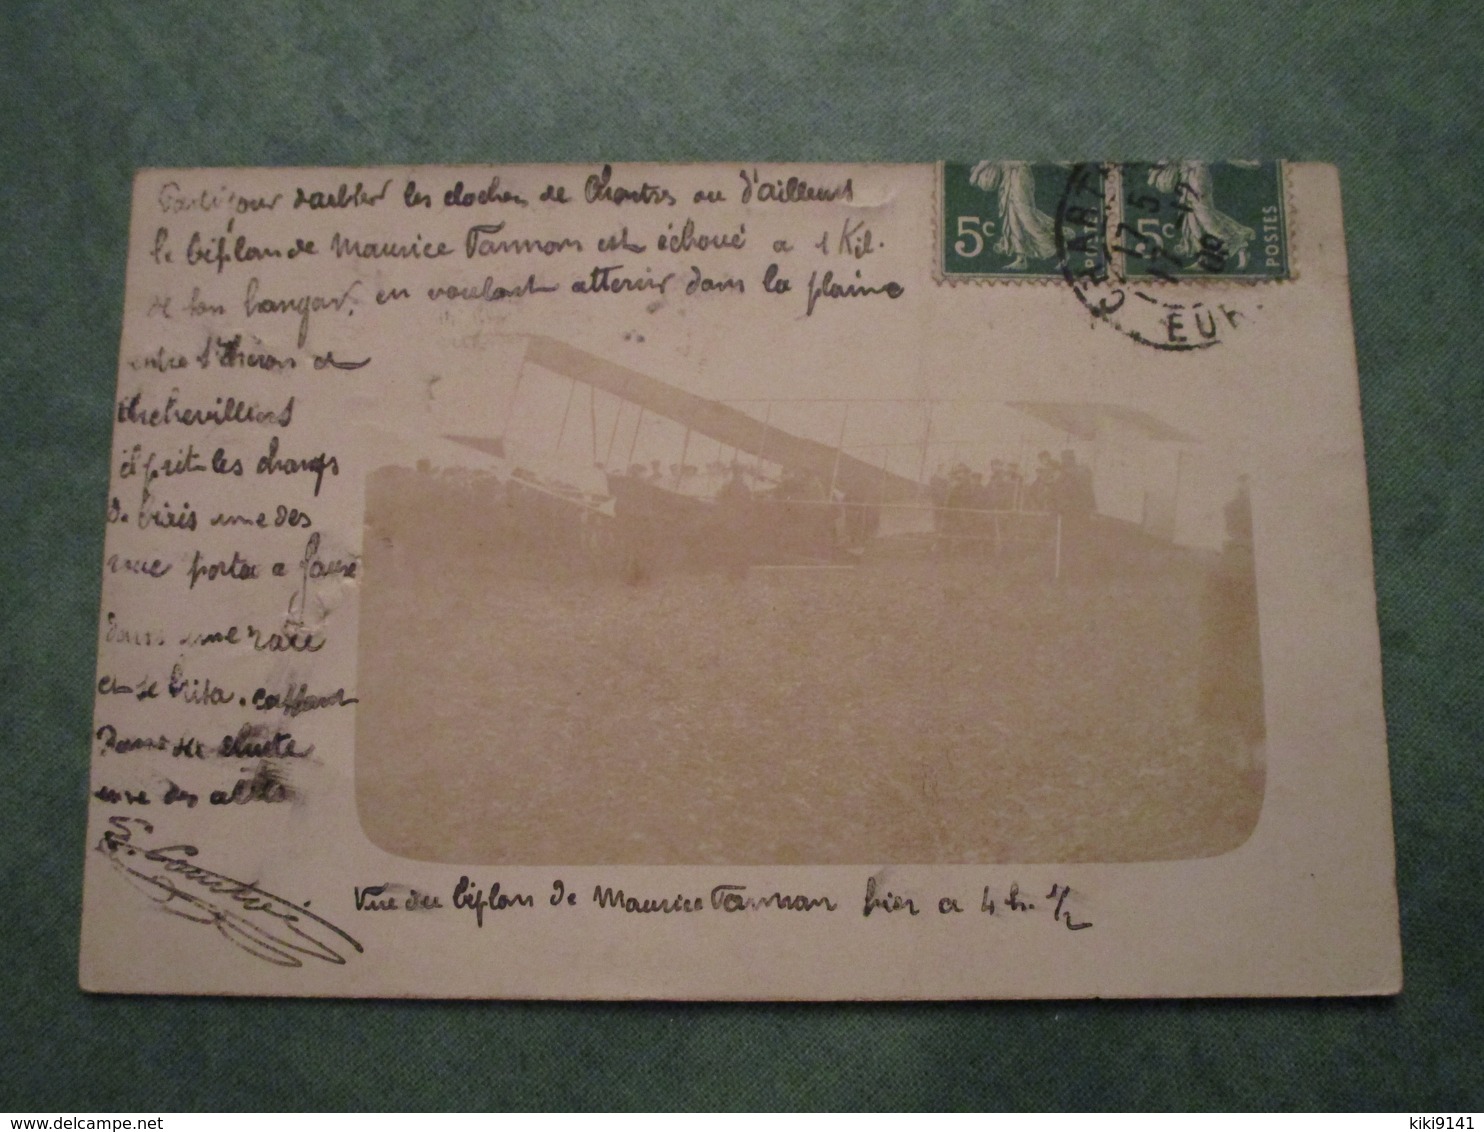 Parti pour doubler les cloches de Chartres ou d'ailleurs
le biplan de Maurice Farman est échoué a 1 Kil.
de son hangar. en voulant atterir dans la plaine
entre et
il prit les champs
de une des
roue porta a faux
dans une raie
et se brisa. cassant
dans sa chute
une des ailes
Vue du biplan de Maurice Farman hier a 4 h. 1/2
5c
5c
POSTES
CHARTRES
17 5
17 -12
09
EUR
kiki9141